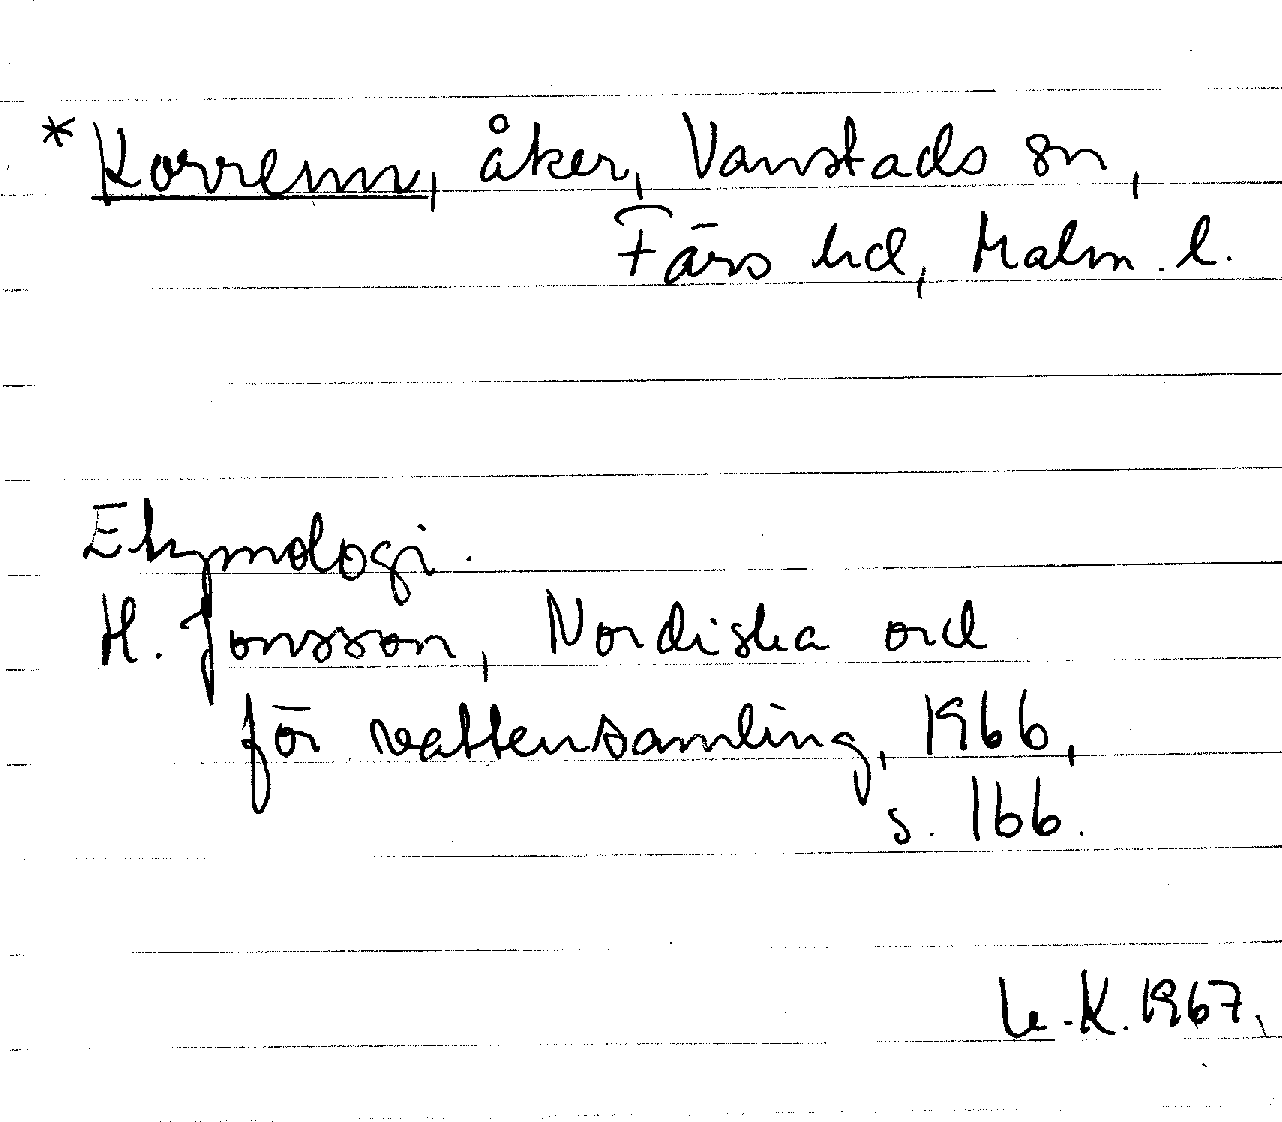 * Korremn, åker, Vanstads sn,
Färs hd, Malm. l.
Etymologi.
H. Jonsson, Nordiska ord
för vattensamling, 1966,
s. 166.
K. 1967.